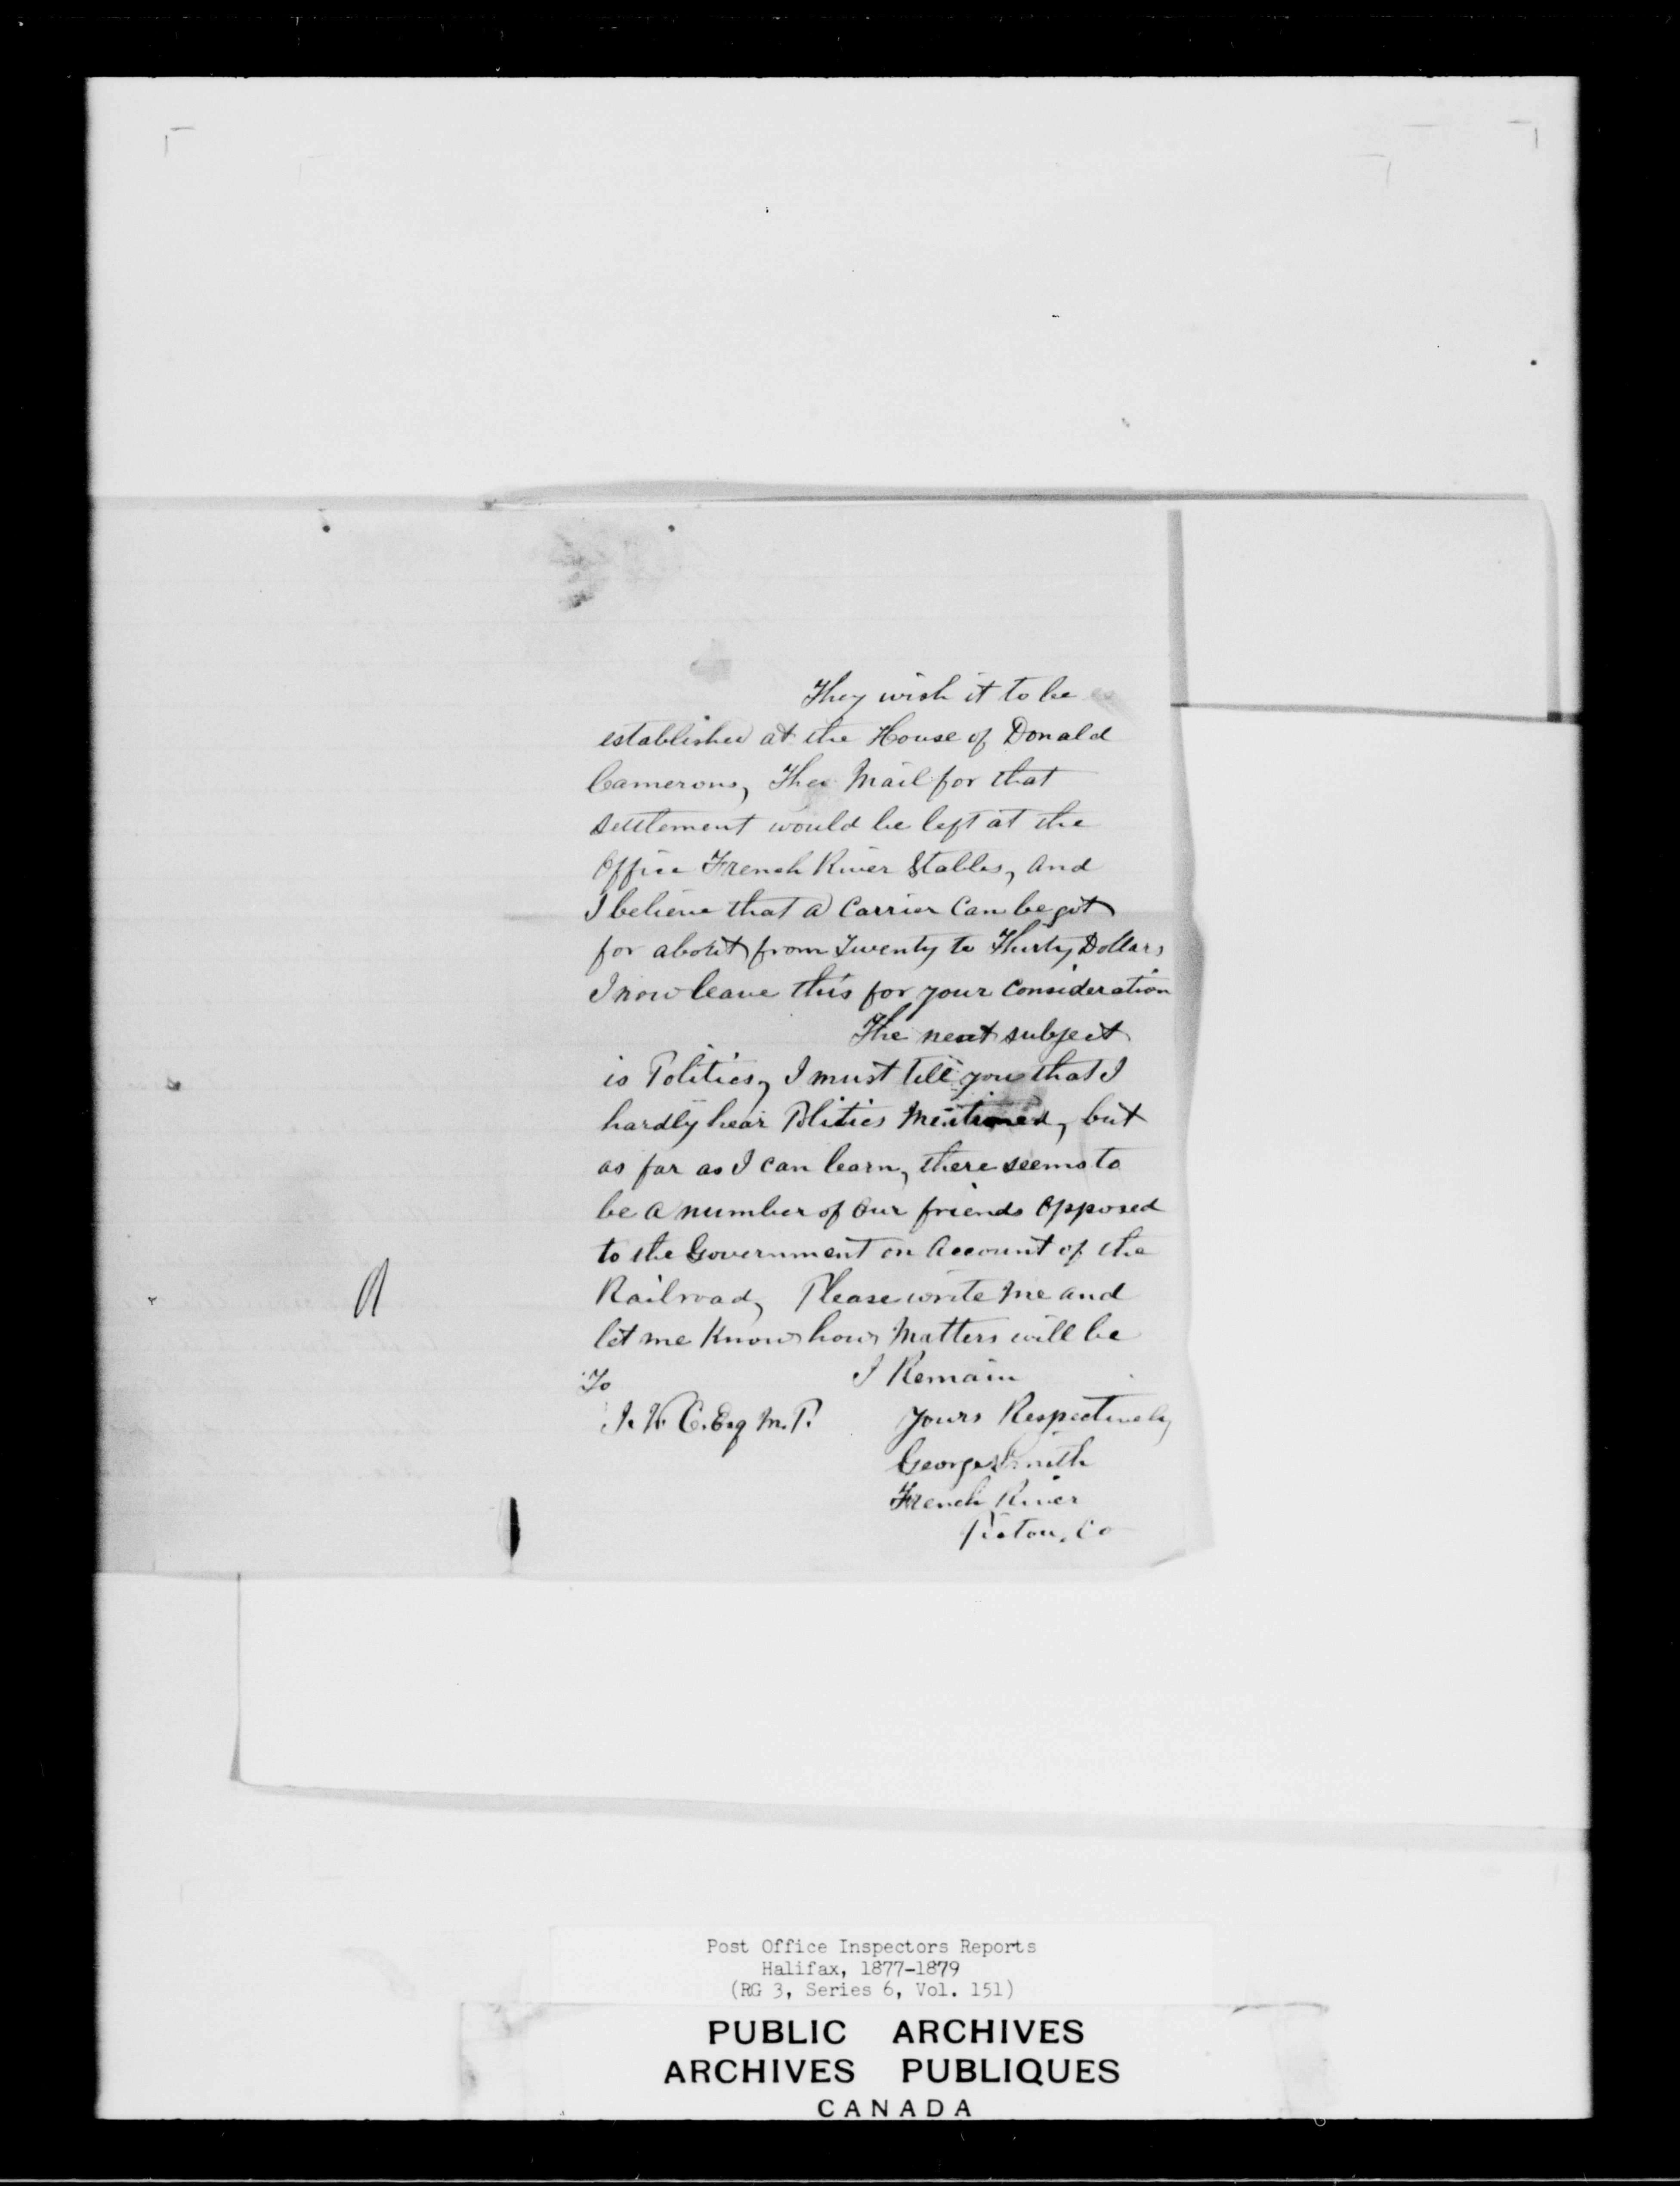 They wish it to be
established at the House of Donald
Camerons, The Mail for that
settlement would be left at the
Office French River Stables, and
I believe that a Carrier Can be got
for about from Twenty to Thirty Dollars
I now leave this for your Consideration
The next subject
is Politics, I must tell you that I
hardly hear Politics Mentioned, but
as far as I can learn, there seems to
be a number of Our friends Opposed
to the Government on Account of the
Railroad, Please write me and
let me Know how Matters will be
I Remain
To
J. W. C. Esq M.P.
Yours Respectively
George Smith
French River
Pictou, Co
Post Office Inspectors Reports
Halifax, 1877-1879
(RG 3, Series 6, Vol. 151)
PUBLIC ARCHIVES
ARCHIVES PUBLIQUES
CANADA